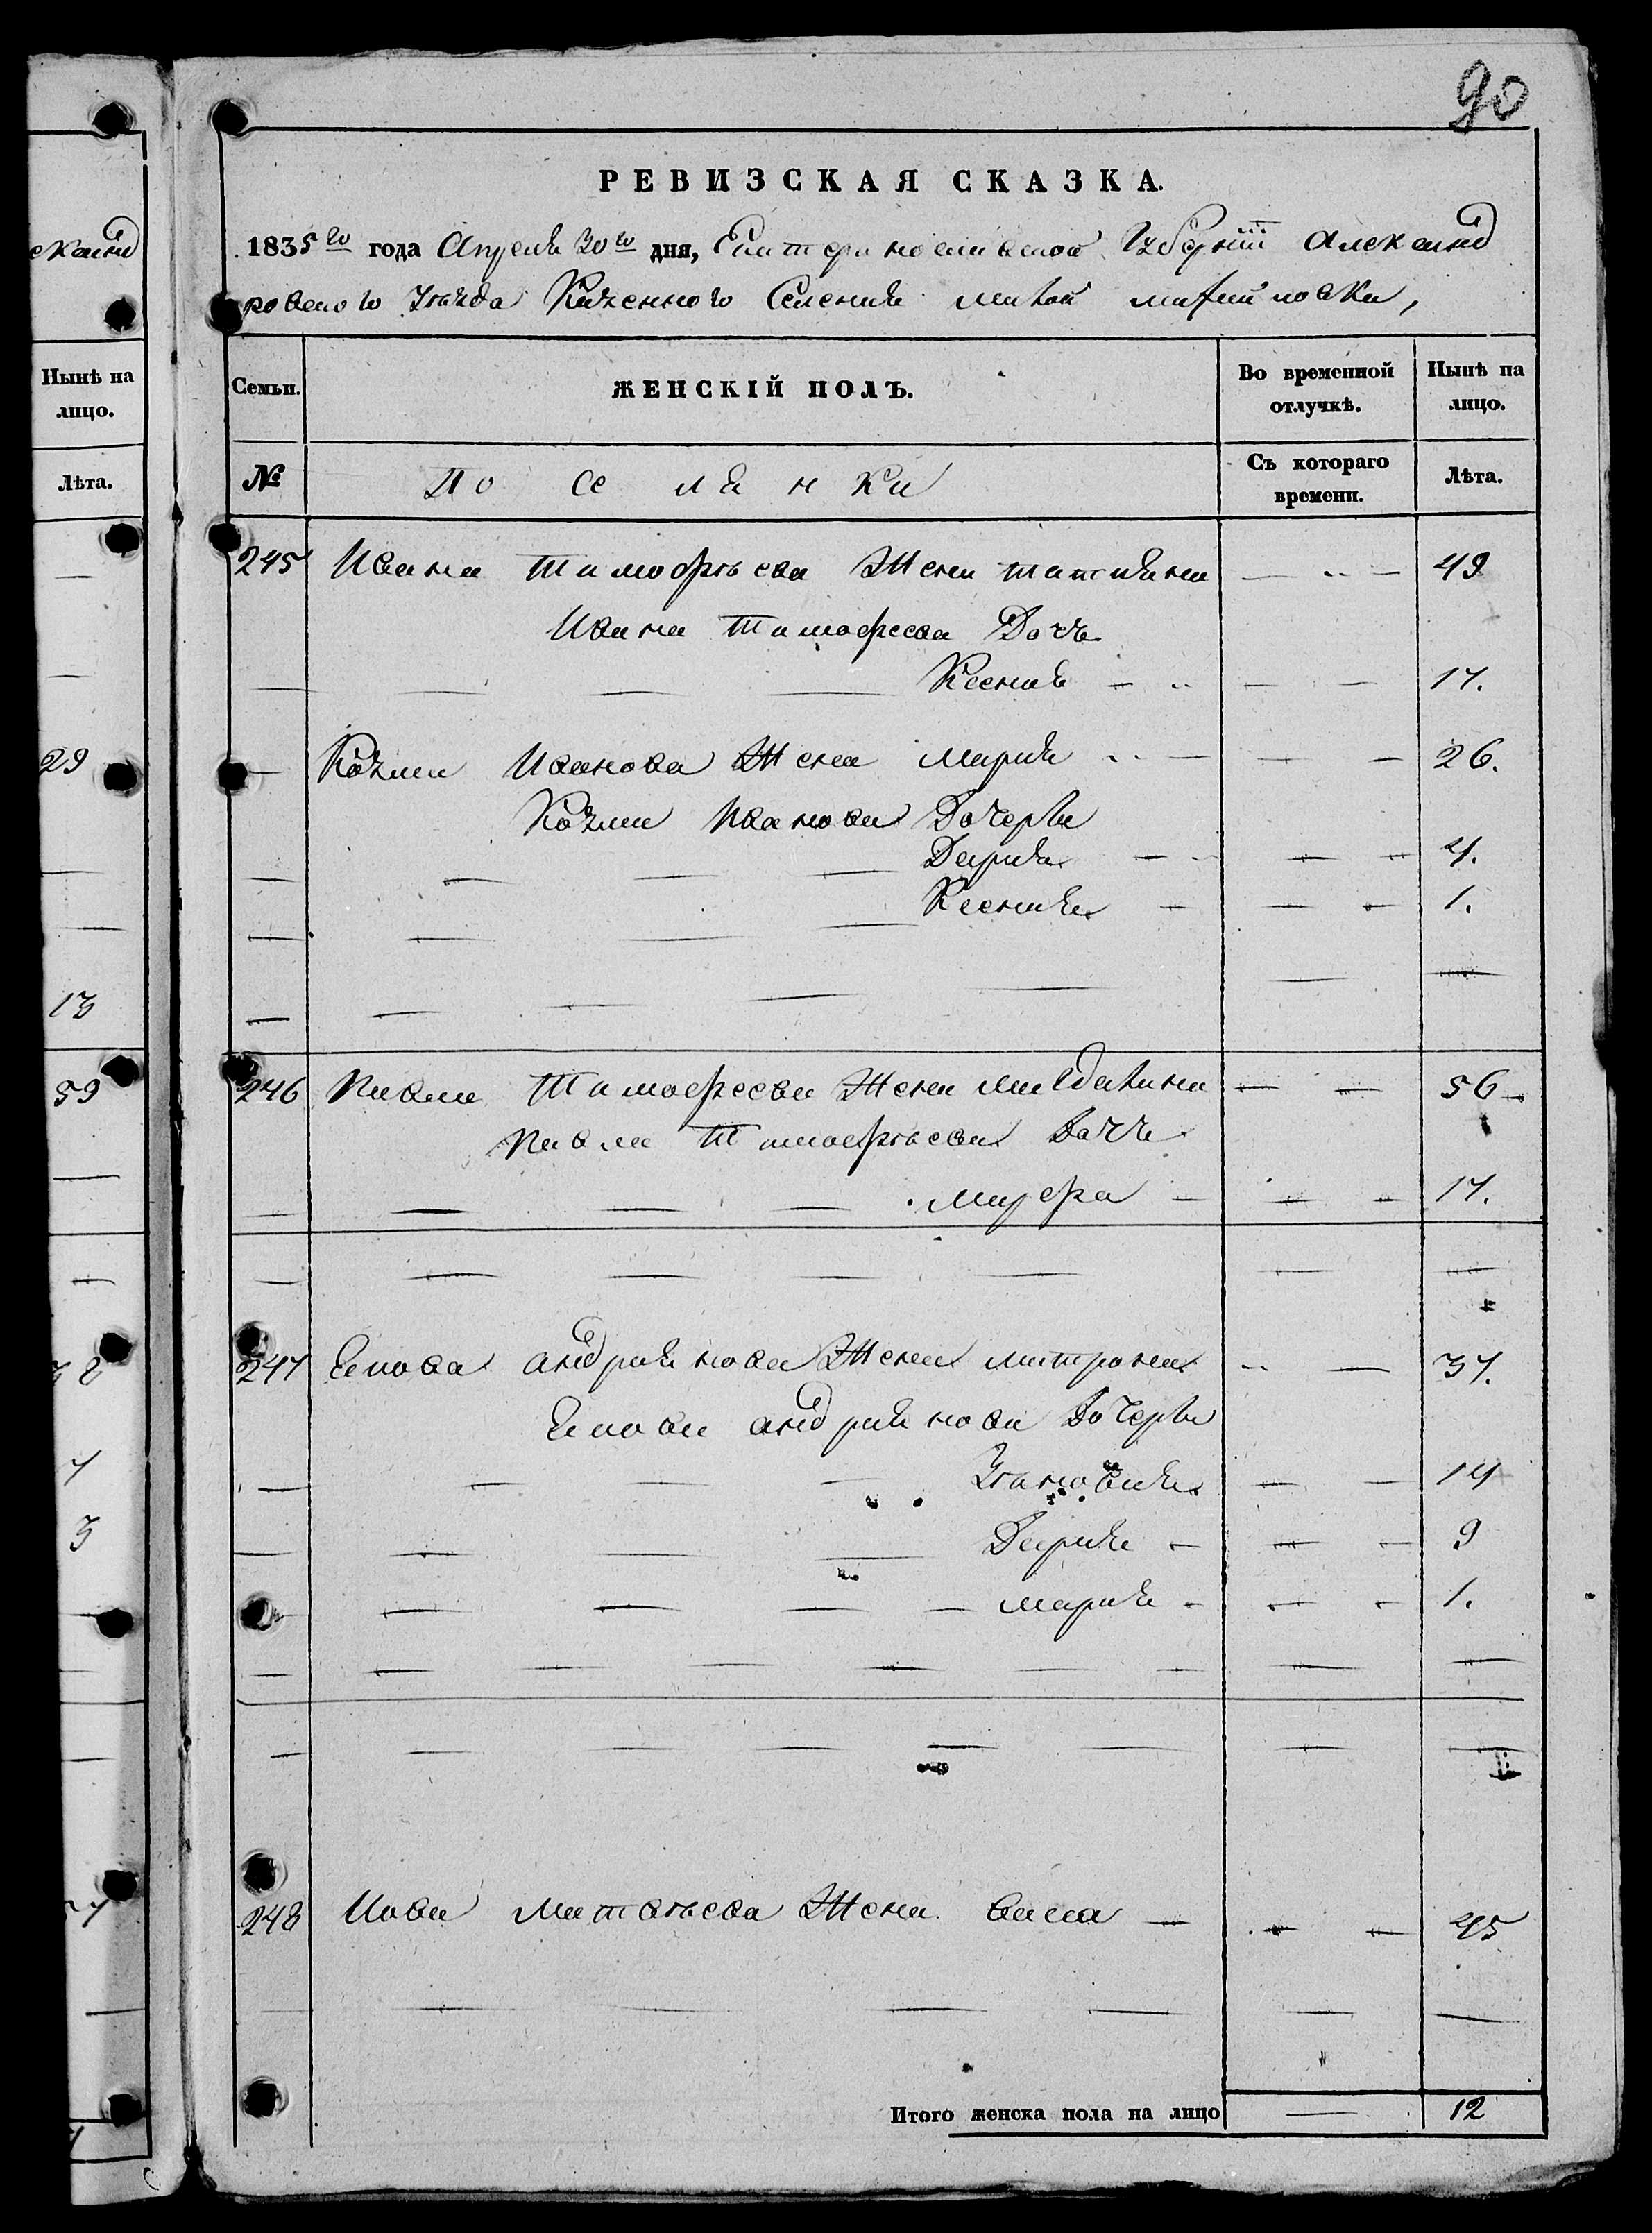 90
РЕВИЗСКАЯ СКАЗКА.
1835 го года Апреля 30 го дня, Екатериносливской Губернiи Александ
ровского Уѣзда Казенного Селения малой михайловки,
Семьи.
ЖЕНСКІЙ ПОЛЪ.
Во временной отлучкѣ.
Нынѣ на лицо.
№
По се ля н ки
Съ котораго времени.
Лѣта.
245 Ивана Тимофѣева Жена татияна 49
Ивана Тимофеева Дочь
Ксения 17.
Козми Иванова Жена мария 26.
Козми Иванова Дочери
Дария 4.
Ксения 1.
246 Павла Тимофеева Жена магдалина 56
Павла Тимофѣева Дочь
марфа 17.
247 андриянова Жена матрона 37.
андриянова Дочери
14
Дария 9
мария 1.
248 Иова Матвѣева Жена васа 45
Итого женска пола на лицо 12
еканд
Нынѣ на лицо.
Лѣта.
29
13
59
7
3